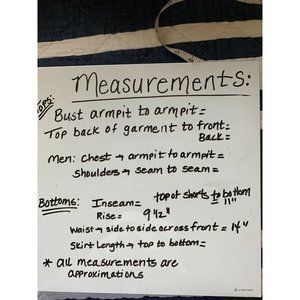 Measurements:
Tops:
Bust armpit to armpit=
Top back of garment to front=
Back=
Men: chest → armpit to armpit=
shoulders → seam to seam=
Bottoms: Inseam= top of shorts to bottom 11"
Rise= 9 1/2"
Waist → side to side across front= 14"
Skirt Length → top to bottom=
* all measurements are
approximations